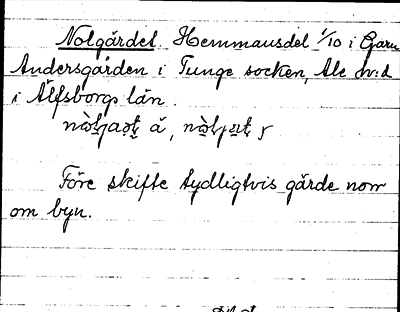 Nolgärdet. Hemmansdel 1/10 i Garn
Andersgården i Tunge socken, Ale hr:d
i Älfsborgs län.
å,
Före skifte tydligtvis gärde norr
om byn.